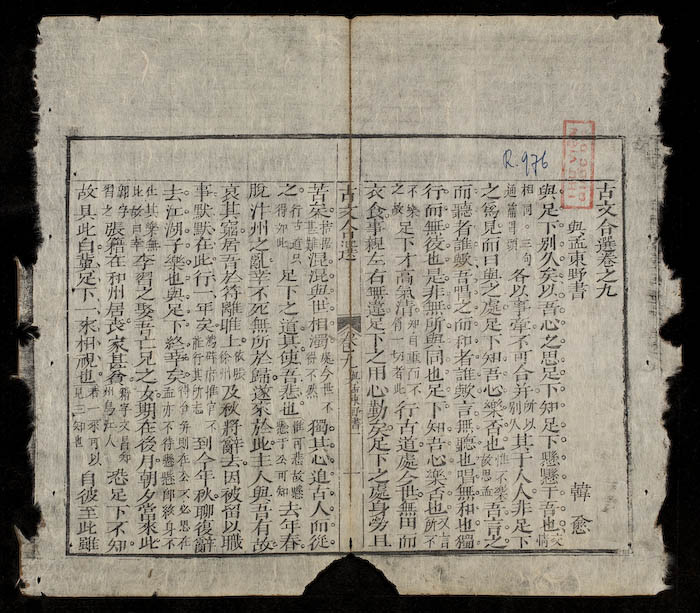 古文合選卷之九
與孟東野書 韓愈
與足下別久矣以吾心之思足下知足下懸懸于吾也交情
相同二句各以事牽不可合并所以別久其于人人非足下
之爲見而日與之處足下知吾心樂否也惟不樂故思孟吾言之
而聽者誰歟吾唱之而和者誰歟言無聽也唱無和也獨
行而無徒也是非無所與同也足下知吾心樂否也又言所以
不樂之故足下才高氣清行古道處今世無田而
衣食事親左右無違足下之用心勤矣足下之處身勞且
古文合選 卷九 與孟東野書 一
苦矣混混與世相濁處今世不得不然獨其心追古人而從
之行古道只得如此足下之道其使吾悲也惟可悲故懸懸于公可知去年春
脫汴州之亂幸不死無所於歸遂來於此主人與吾有故
哀其窮居吾於符離睢上依張徐州及秋將辭去因被留以職
事默默在此行一年矣到今年秋聊復辭
去江湖予樂也與足下終幸矣
李習之娶吾亡兄之女期在後月朝夕當來此
翱字習之張籍在和州居喪家甚貧籍字文昌和州烏江人恐足下不知
故具此白冀足下一來相視也自彼至此雖
R.976